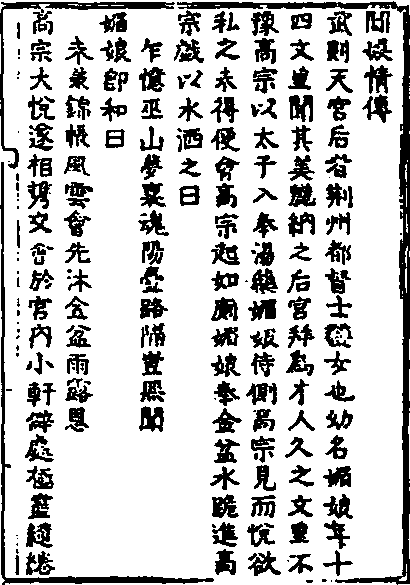 閨娱情傳
武則天宮后者荆州都督士彠女也幼名媚娘年十
四文皇聞其美麗納之后宮拜爲才人久之文皇不
豫高宗以太子入奉湯藥媚娘侍側高宗見而悅欲
私之未得便會高宗起如廁媚娘奉金盆水跪進高
宗戲以水洒之曰
乍憶巫山夢裏魂陽臺路隔豈無聞
媚娘卽和曰
未兼錦帳風雲會先沐金盆雨露恩
高宗大悅遂相携交會於宮內小軒僻處極盡繾綣